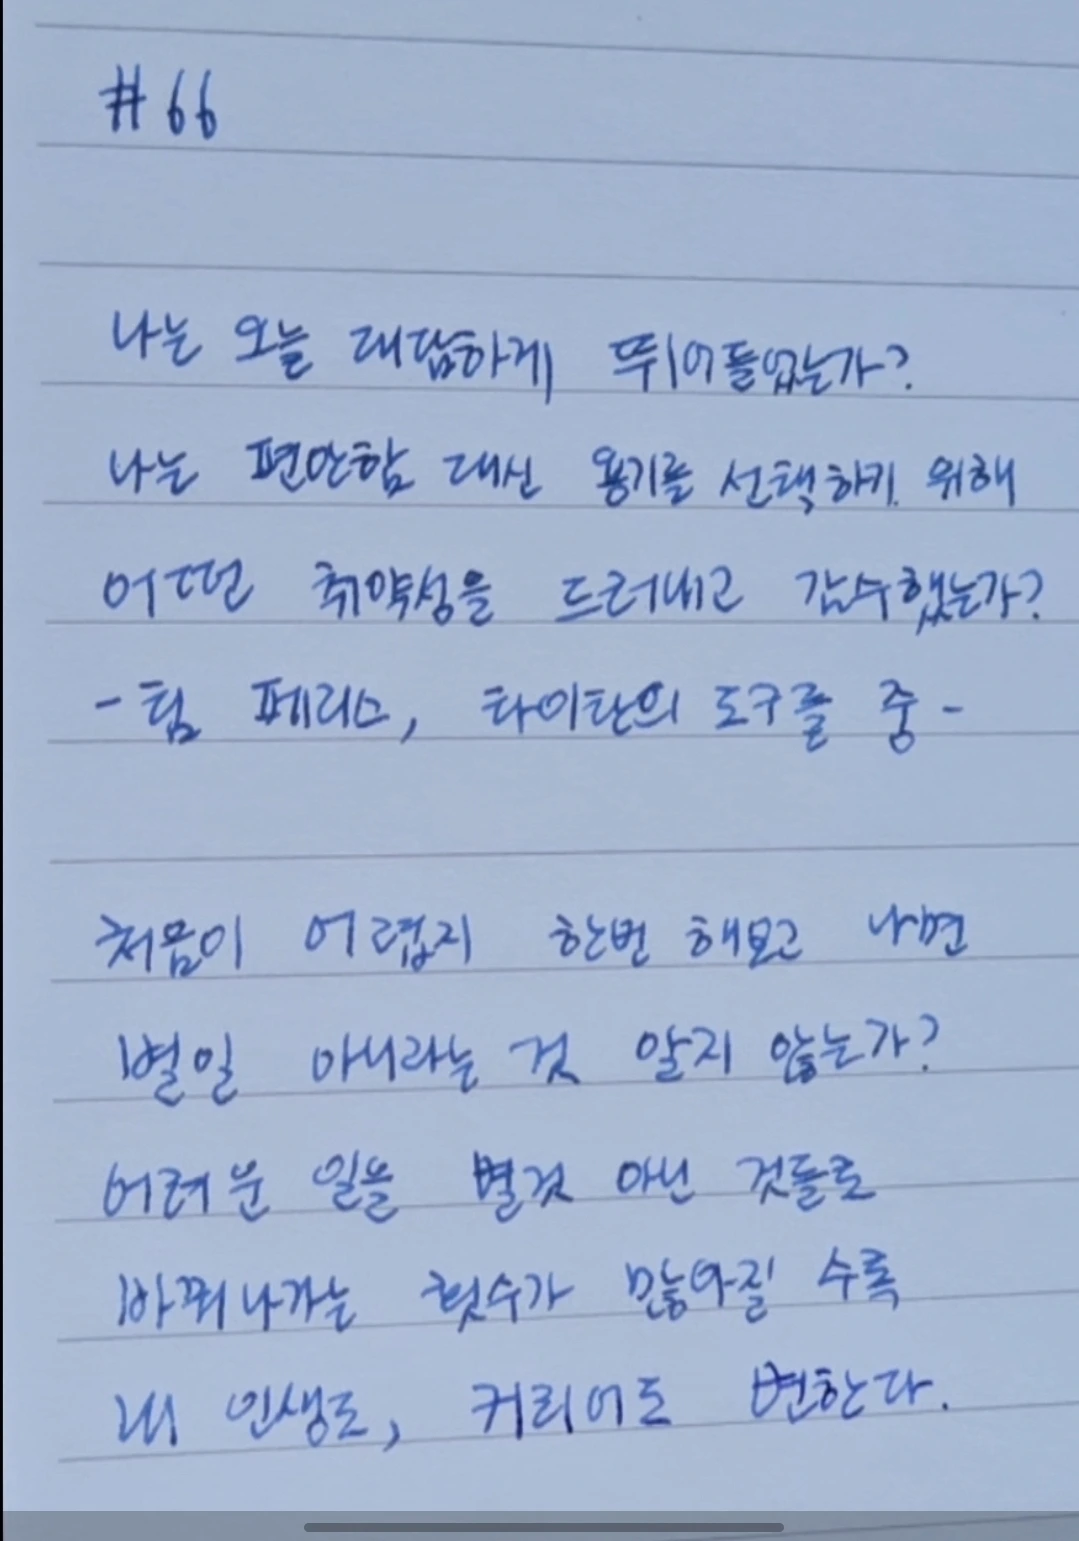 #66
나는 오늘 대담하게 뛰어들었는가?
나는 편안함 대신 용기를 선택하기 위해
어떤 취약성을 드러내고 감수했는가?
- 팀 페리스, 타이탄의 도구들 중 -
처음이 어렵지 한번 해보고 나면
별일 아니라는 것 알지 않는가?
어려운 일을 별것 아닌 것들로
바꿔나가는 횟수가 많아질 수록
내 인생도, 커리어도 변한다.